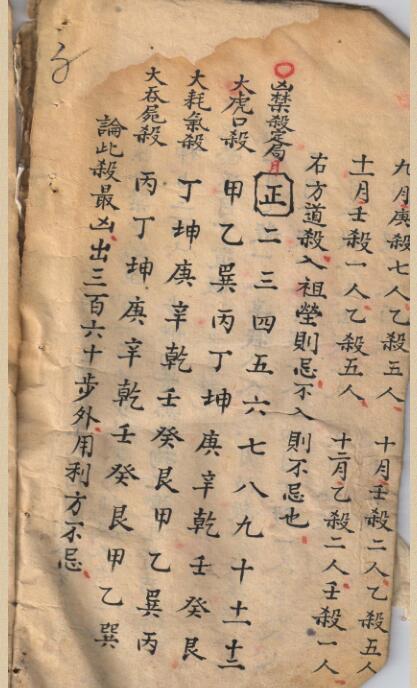 九月庚殺七人乙殺三人
十月壬殺二人乙殺五人
十一月壬殺一人乙殺五人
十二月乙殺二人壬殺一人
右方道殺入祖塋則忌不入則不忌也
凶禁殺定局月 正二三四五六七八九十十一十二
大虎口殺 甲乙巽丙丁坤庚辛乾壬癸艮
大耗氣殺 丁坤庚辛乾壬癸艮甲乙巽丙
大吞屍殺 丙丁坤庚辛乾壬癸艮甲乙巽
論此殺最凶出三百六十步外用利方不忌